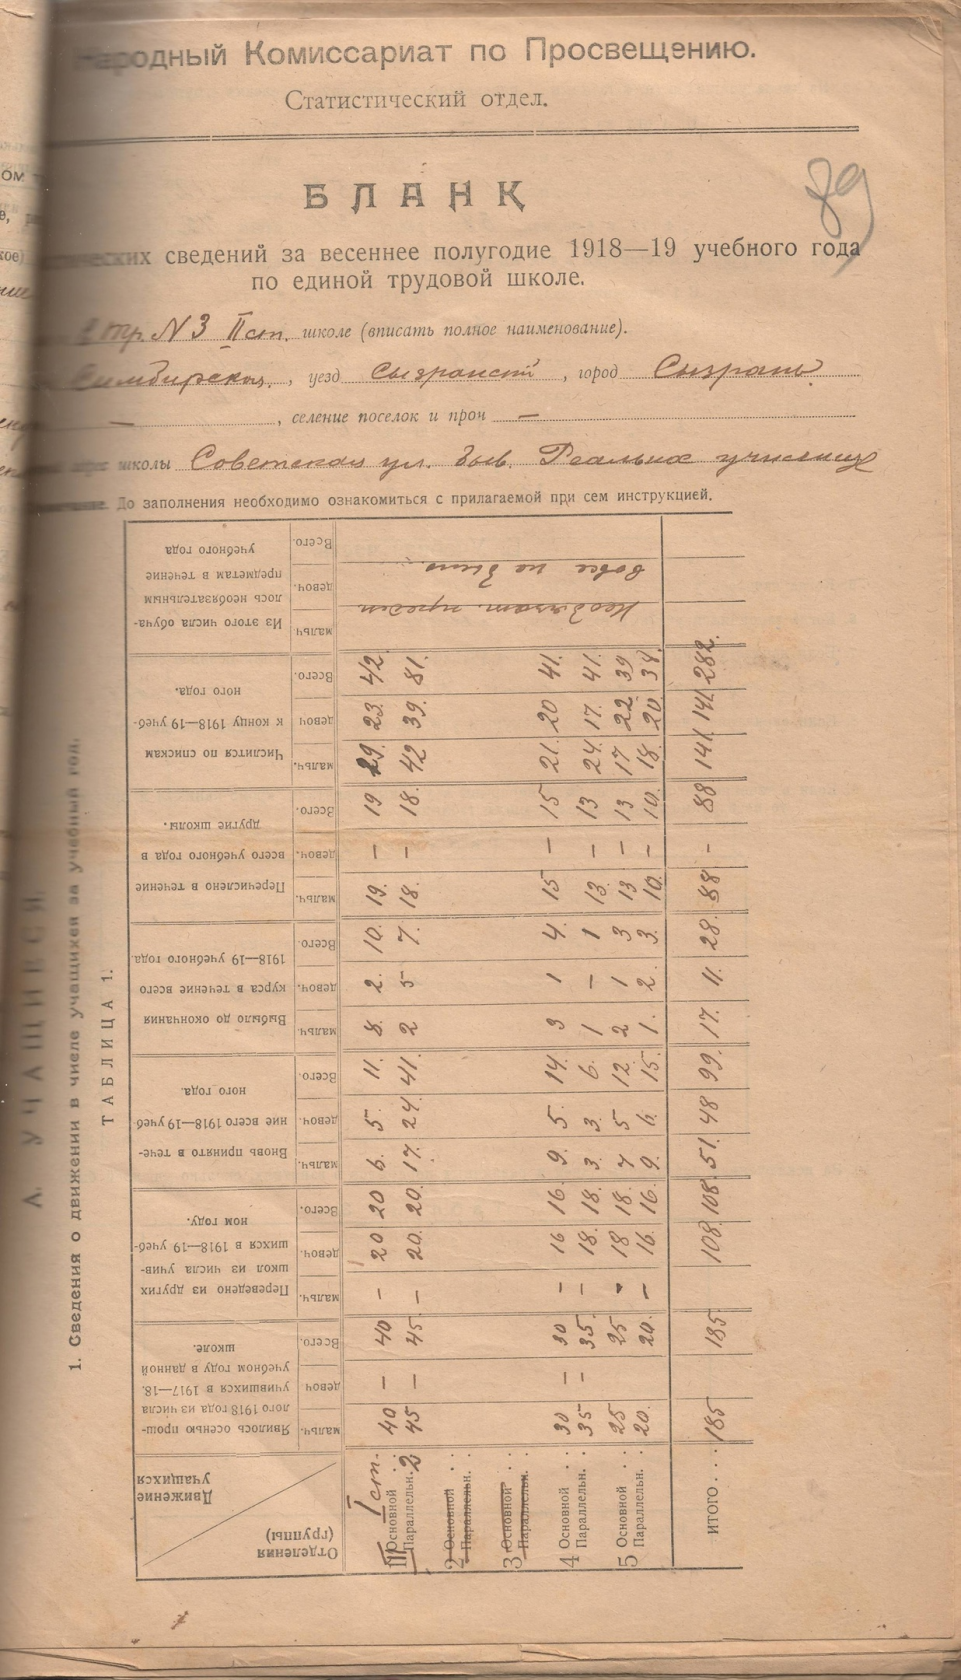 Народный Комиссариат по Просвещению.
Статистический отдел.
89
БЛАНК
сведений за весеннее полугодие 1918—19 учебного года
по единой трудовой школе.
тр. N 3 II ст. школе (вписать полное наименование).
Симбирская, уезд Сызранский, город Сызрань
—, селение поселок и проч —
школы Советская ул. быв. Реальное училище
До заполнения необходимо ознакомиться с прилагаемой при сем инструкцией.
А. УЧАЩИЕСЯ.
1. Сведения о движении в числе учащихся за учебный год.
ТАБЛИЦА 1.
Движение учащихся
Отделения (группы)
Явилось осенью прошлого 1918 года из числа учившихся в 1917—18. учебном году в данной школе.
Переведено из других школ из числа учившихся в 1918—19 учебном году.
Вновь принято в течение всего 1918—19 учебного года.
Выбыло до окончания курса в течение всего 1918—19 учебного года.
Перечислено в течение всего учебного года в другие школы.
Числится по спискам к концу 1918—19 учебного года.
Из этого числа обучалось необязательным предметам в течение учебного года
мальч. девоч. Всего. мальч. девоч. Всего. мальч. девоч. Всего. мальч. девоч. Всего. мальч. девоч. Всего. мальч. девоч. Всего. мальч. девоч. Всего.
I ст.
III Основной 40 — 40 — 20 20 6. 5. 11. 8. 2. 10. 19. — 19 29. 23. 42.
Параллельн. 2 45 — 45. — 20. 20. 17. 24. 41. 2 5 7. 18. — 18. 42 39. 81.
2 Основной
Параллельн.
3 Основной
Параллельн.
4 Основной 30 — 30 — 16 16. 9. 5. 14. 3 1 4. 15 — 15 21. 20 41.
Параллельн. 35 — 35. — 18. 18. 3. 3. 6. 1 — 1 13. — 13 24. 17. 41.
5 Основной 25 25 18 18. 7 5 12. 2 1 3 13 — 13 17 22 39
Параллельн. 20. 20. — 16. 16. 9. 6. 15. 1. 2. 3. 10. — 10. 18. 20.
Необязат. предм.
вовсе не было.
ИТОГО 185 185. 108. 108. 51. 48 99. 17. 11. 28. 88 — 88 141. 141. 282.